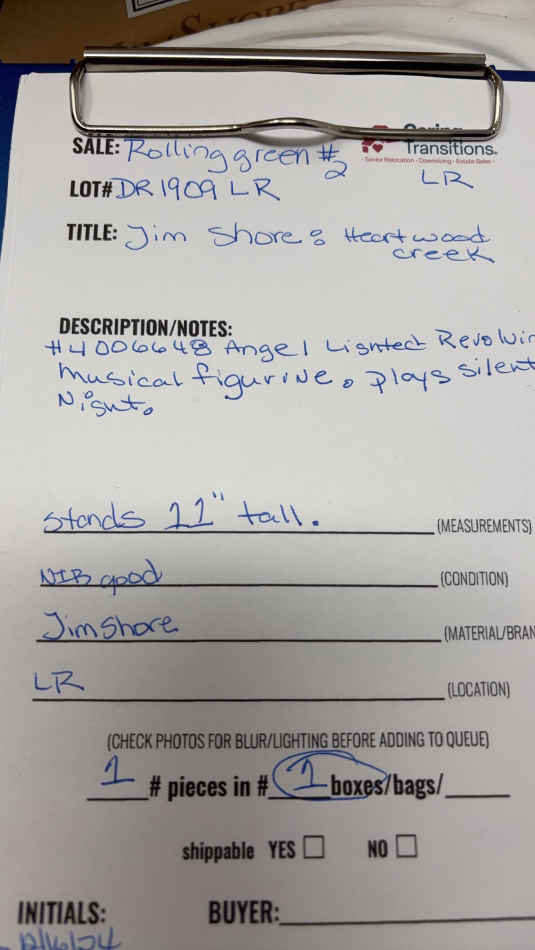 JIM SHORE
Caring
Transitions.
Senior Relocation • Downsizing • Estate Sales
SALE: Rolling green #2
LR
LOT# DR1909 LR
TITLE: Jim Shore: Heartwood
creek
DESCRIPTION/NOTES:
#4006648 Angel Lighted Revolvin
musical figurine. plays silent
Night.
stands 11" tall. (MEASUREMENTS)
NIB good (CONDITION)
Jim Shore (MATERIAL/BRAN
LR (LOCATION)
(CHECK PHOTOS FOR BLUR/LIGHTING BEFORE ADDING TO QUEUE)
1 # pieces in # 1 boxes/bags/
shippable YES NO
INITIALS: BUYER: